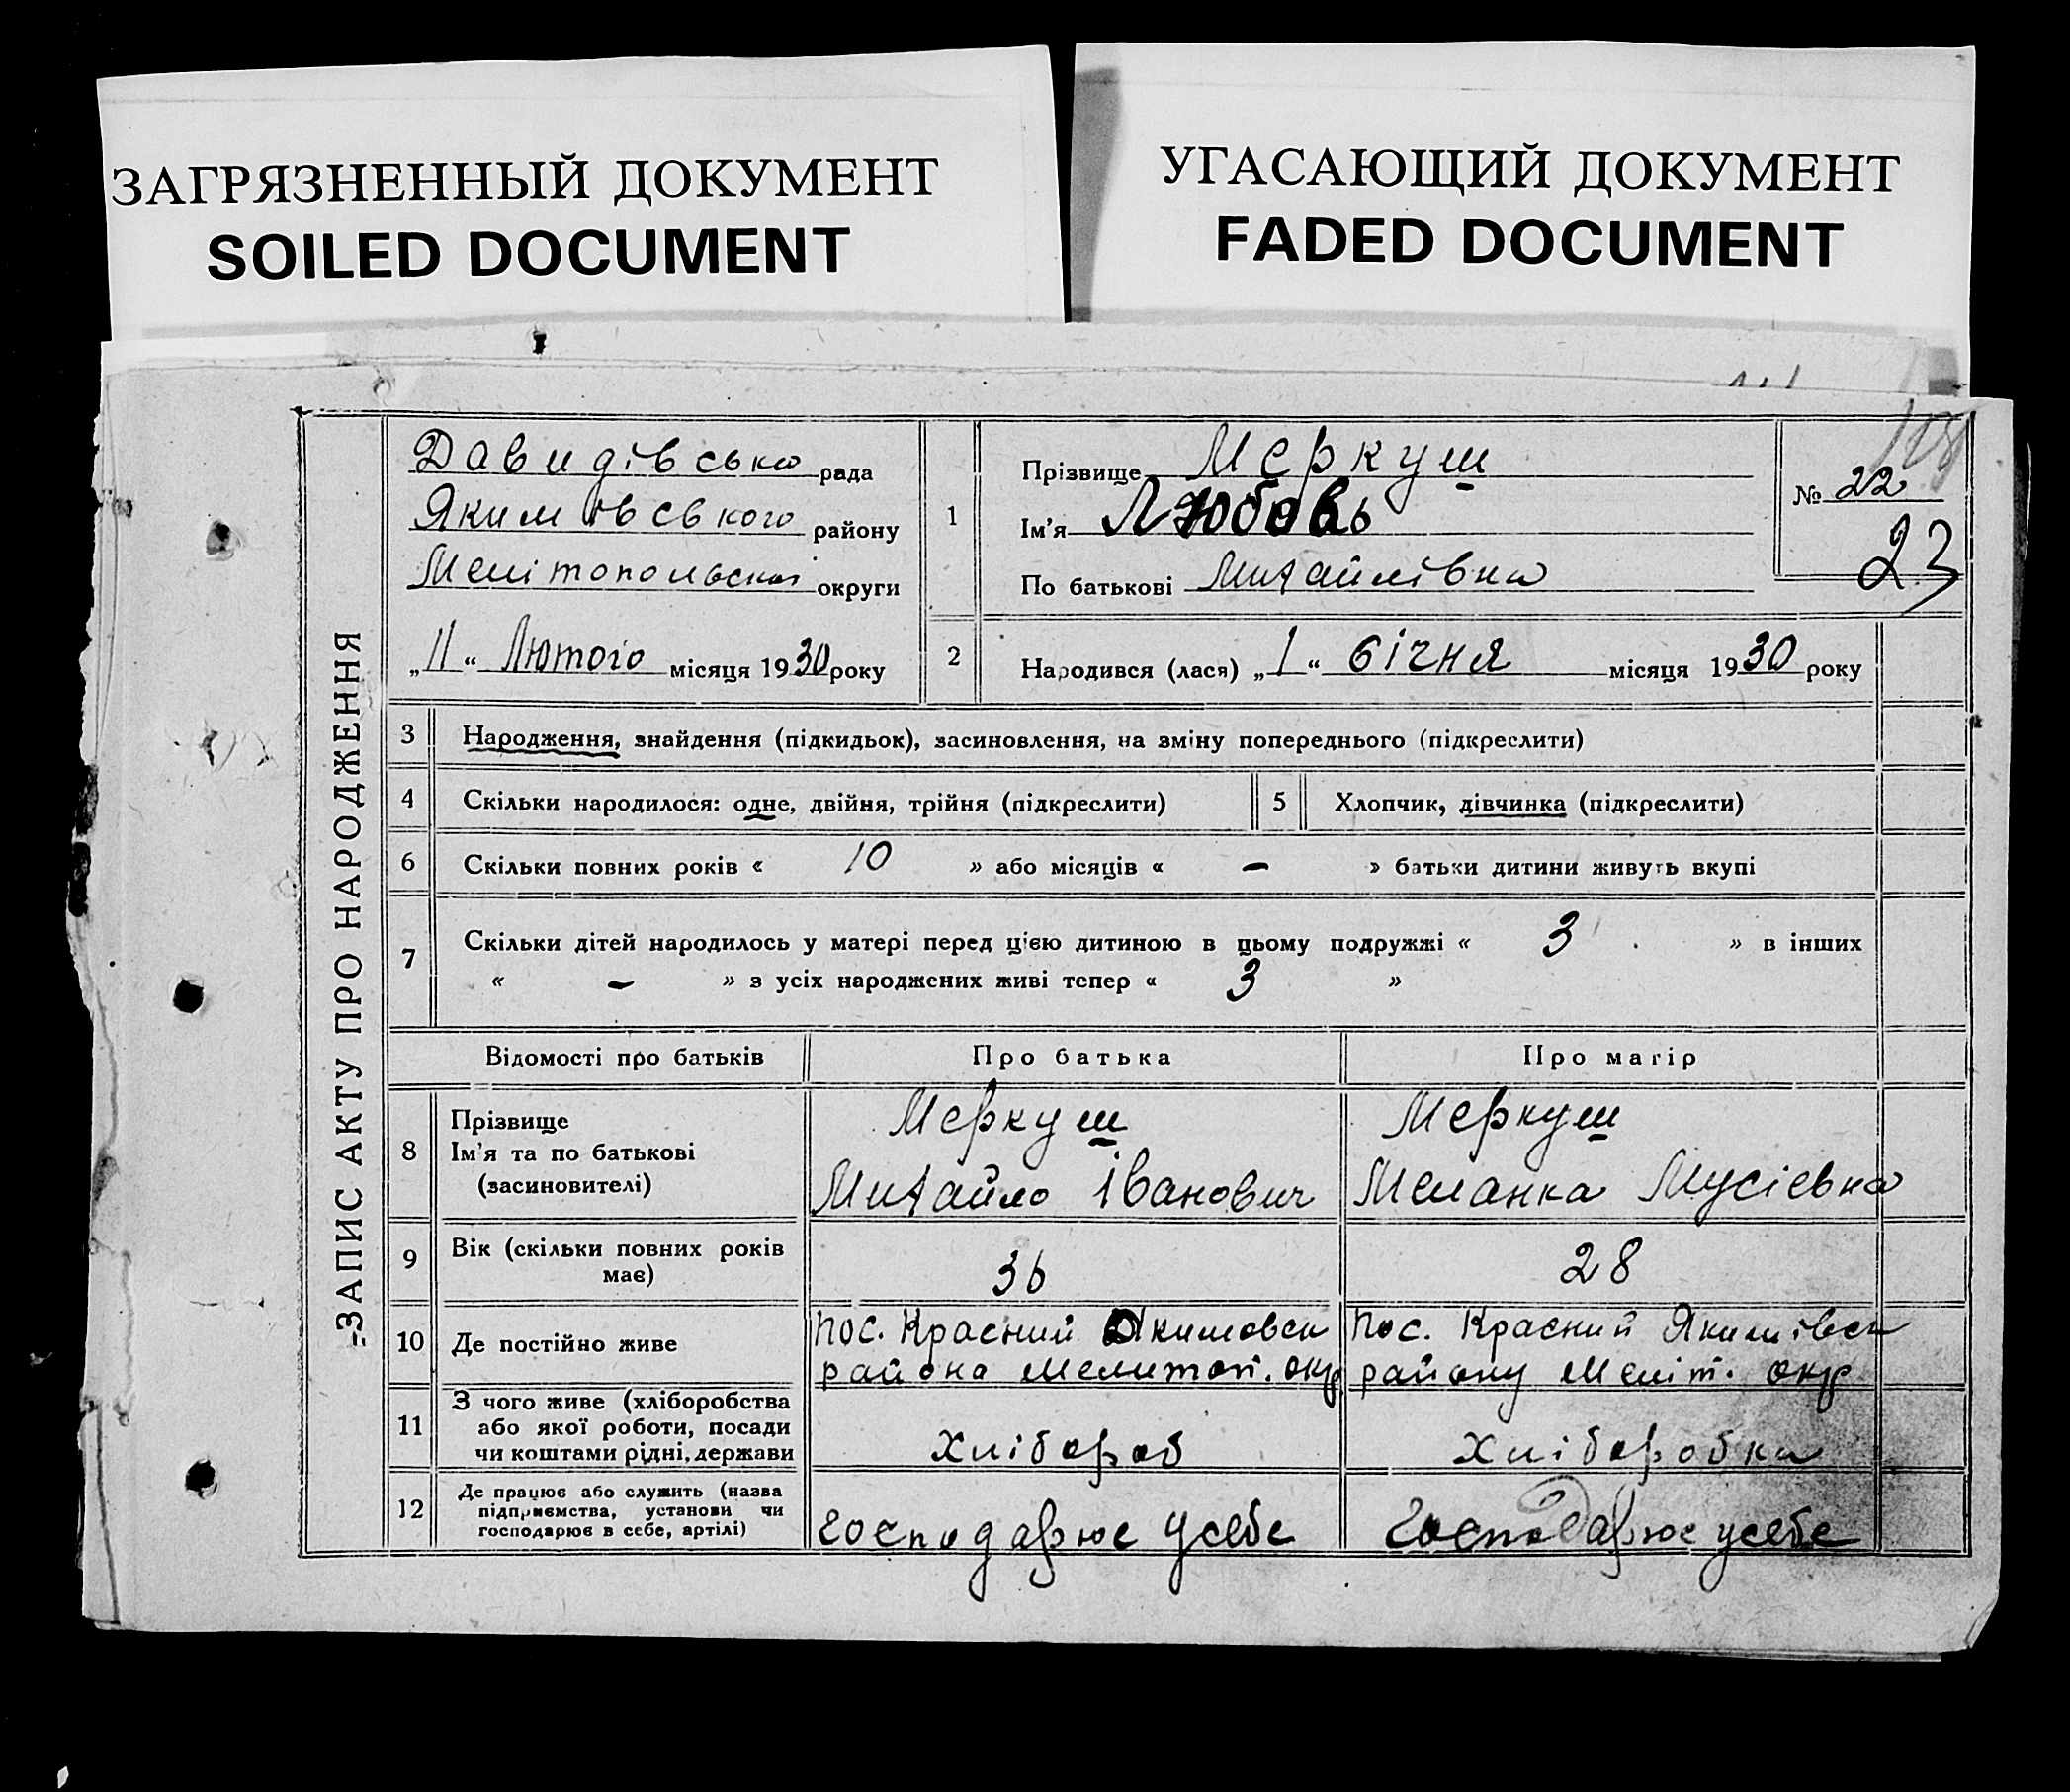 ЗАГРЯЗНЕННЫЙ ДОКУМЕНТ
SOILED DOCUMENT
УГАСАЮЩИЙ ДОКУМЕНТ
FADED DOCUMENT
ЗАПИС АКТУ ПРО НАРОДЖЕННЯ
Давидівська рада
Якимівського району
Мелітопольської округи
„11“ Лютого місяця 1930 року
1
Прізвище Меркуш
Ім'я Любовь
По батькові Михайлівна
№ 22
23
2 Народився (лася) „1“ січня місяця 1930 року
3 Народження, знайдення (підкидьок), засиновлення, на зміну попереднього (підкреслити)
4 Скільки народилося: одне, двійня, трійня (підкреслити) 5 Хлопчик, дівчинка (підкреслити)
6 Скільки повних років « 10 » або місяців « – » батьки дитини живуть вкупі
7 Скільки дітей народилось у матері перед цією дитиною в цьому подружжі « 3 » в інших
« – » з усіх народжених живі тепер « 3 »
Відомості про батьків Про батька Про матір
8 Прізвище
Ім'я та по батькові
(засиновителі)
Меркуш
Михайло Іванович
Меркуш
Меланка Мусієвна
9 Вік (скільки повних років
має)
36
28
10 Де постійно живе
пос. Красний Якимовск
района Мелитоп. окр
пос. Красний Якимівск
району Меліт. окр
11 З чого живе (хліборобства
або якої роботи, посади
чи коштами рідні, держави
Хлібороб
Хліборобка
12 Де працює або служить (назва
підприємства, установи чи
господарює в себе, артілі)
господарює усебе
господарює усебе